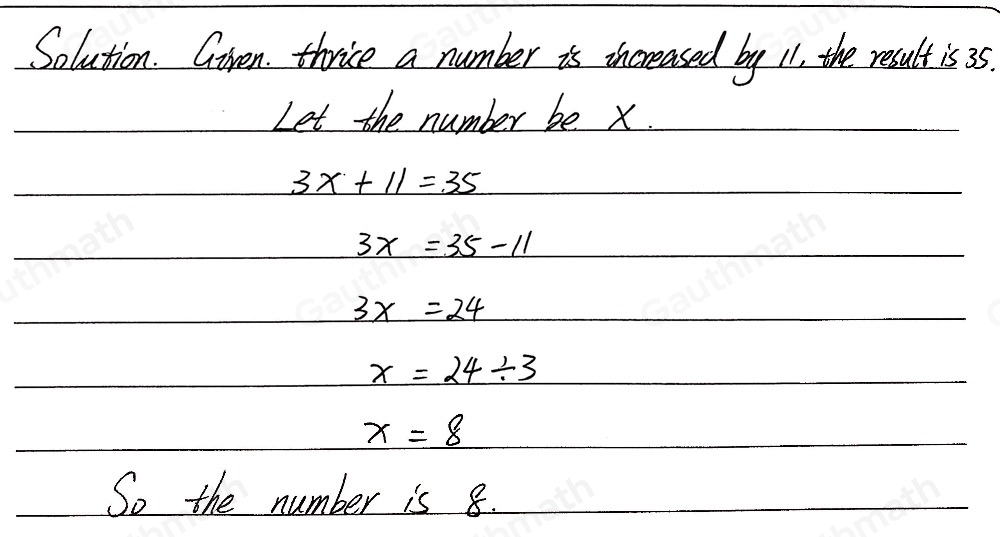 Solution. Given. thrice a number is increased by 11, the result is 35.
Let the number be x.
3x + 11 = 35
3x = 35 - 11
3x = 24
x = 24 ÷ 3
x = 8
So the number is 8.